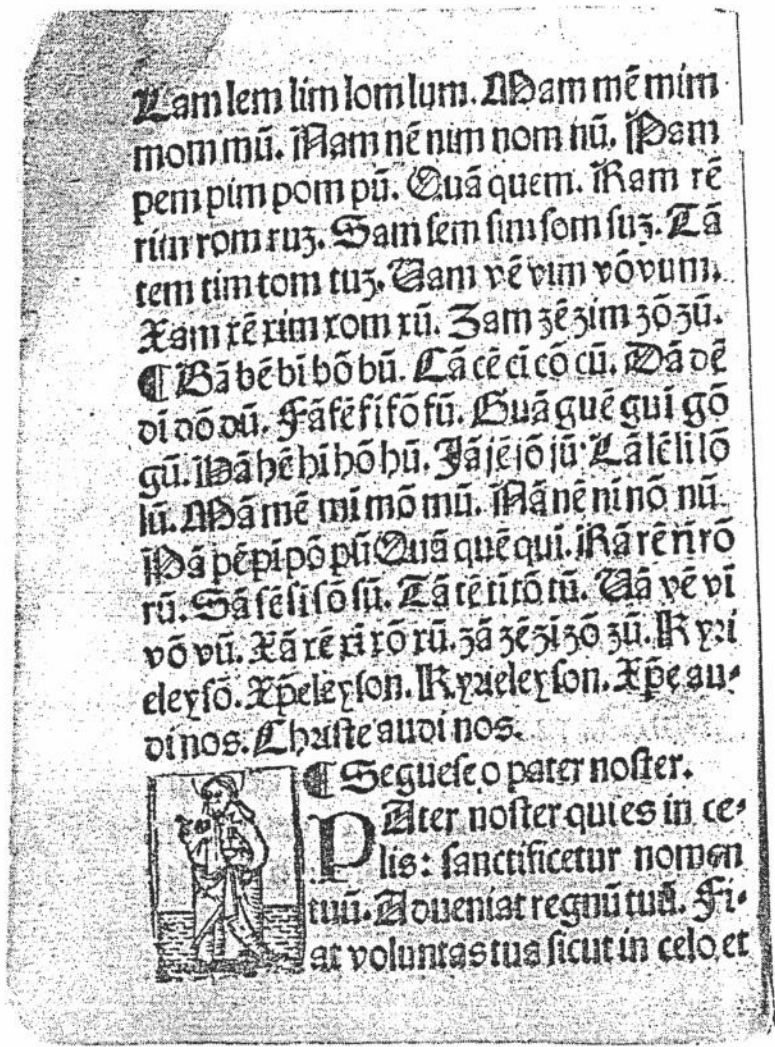 Lam lem lim lom lum. Mam mẽ mim
mom mũ. Nam nẽ nim nom nũ. Pam
pem pim pom pũ. Quã quem. Ram rẽ
rim rom ruʒ. Sam sem sim som suʒ. Tã
tem tim tom tuʒ. Uam vẽ vim võ vum.
Xam xẽ xim xom xũ. Zam zẽ zim zõ zũ.
¶ Bã bẽ bi bõ bũ. Cã cẽ ci cõ cũ. Dã dẽ
di dõ dũ. Fã fẽ fi fõ fũ. Guã guẽ gui gõ
gũ. Hã hẽ hi hõ hũ. Jã jẽ jõ jũ. Lã lẽ li lõ
lũ. Mã mẽ mi mõ mũ. Nã nẽ ni nõ nũ.
Pã pẽ pi põ pũ Quã quẽ qui. Rã rẽ ri rõ
rũ. Sã sẽ si sõ sũ. Tã tẽ ti tõ tũ. Uã vẽ vi
võ vũ. Xã xẽ xi xõ xũ. zã zẽ zi zõ zũ. Kyri
eleysõ. Xp̃eleyson. Kyrieleyson. Xp̃e au-
di nos. Christe audi nos.
¶ Seguese o pater noster.
PAter noster qui es in ce-
lis: sanctificetur nomen
tuũ. Adueniat regnũ tuũ. Fi-
at voluntas tua sicut in celo et